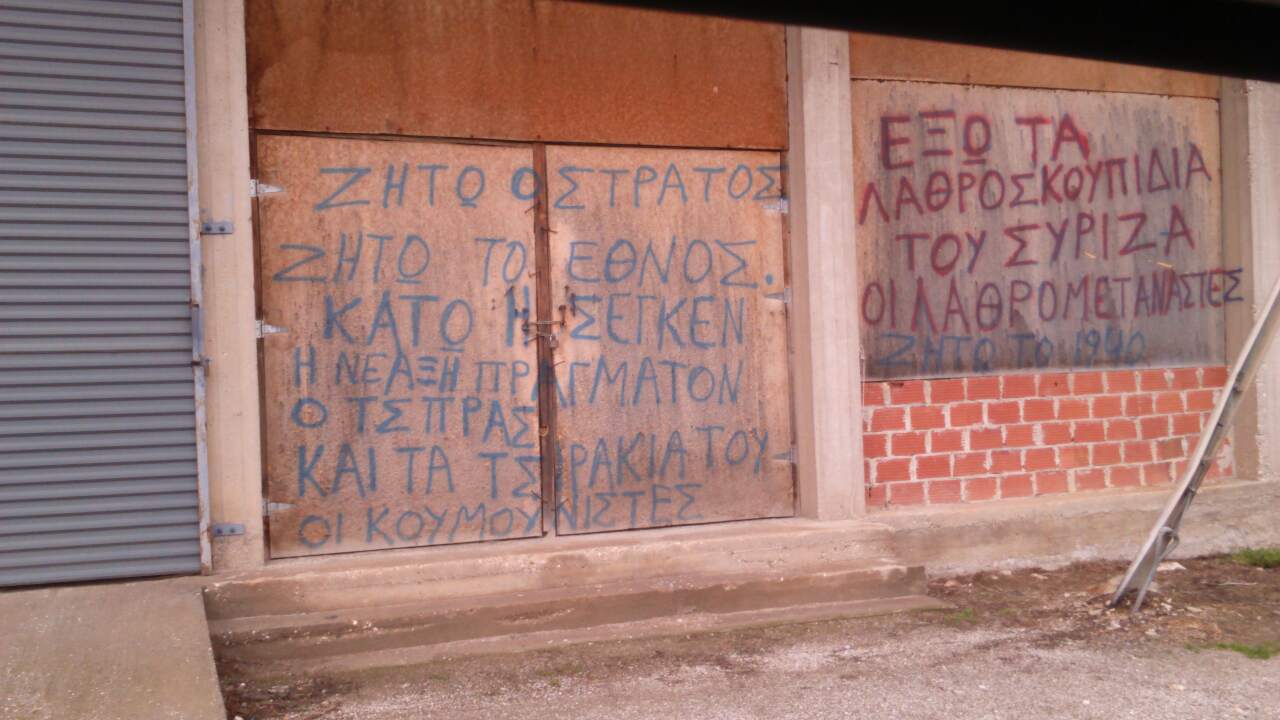 ΖΗΤΩ Ο ΣΤΡΑΤΟΣ
ΖΗΤΩ ΤΟ ΕΘΝΟΣ.
ΚΑΤΟ Η ΣΕΓΚΕΝ
Η ΝΕΑ ΑΞΗ ΠΡΑΓΜΑΤΟΝ
Ο ΤΣΠΡΑΣ
ΚΑΙ ΤΑ ΤΣΙΡΑΚΙΑ ΤΟΥ
ΟΙ ΚΟΥΜΟΥΝΙΣΤΕΣ
ΕΞΩ ΤΑ
ΛΑΘΡΟΣΚΟΥΠΙΔΙΑ
ΤΟΥ ΣΥΡΙΖΑ
ΟΙ ΛΑΘΡΟΜΕΤΑΝΑΣΤΕΣ
ΖΗΤΩ ΤΟ 1940